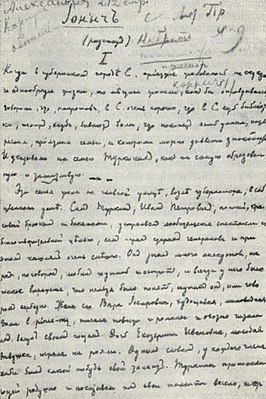 Іонычъ
(разсказъ)
I
Когда въ губернскомъ городѣ С. пріѣзжіе жаловались на скуку
и однообразіе жизни, то мѣстные жители, какъ бы оправдываясь,
говорили, что, напротивъ, въ С. очень хорошо, что въ С. есть библіо-
тека, театръ, клубъ, бываютъ балы, что, наконецъ, есть умныя, инте-
ресныя, пріятныя семьи, съ которыми можно завести знакомства.
И указывали на семью Туркиныхъ, какъ на самую образован-
ную и талантливую.
Эта семья жила на главной улицѣ, возлѣ губернатора, въ соб-
ственномъ домѣ. Самъ Туркинъ, Иванъ Петровичъ, полный, кра-
сивый брюнетъ съ бакенами, устраивалъ любительскіе спектакли съ
благотворительной цѣлью, самъ игралъ старыхъ генераловъ и при
этомъ кашлялъ очень смѣшно. Онъ зналъ много анекдотовъ, ша-
радъ, поговорокъ, любилъ шутить и острить, и всегда у него было
такое выраженіе, что нельзя было понять, шутитъ онъ, или гово-
ритъ серьезно. Жена его Вѣра Іосифовна, худощавая, миловидная
дама въ pince-nez, писала повѣсти и романы и охотно читала
ихъ вслухъ своимъ гостямъ. Дочь Екатерина Ивановна, молодая
дѣвушка, играла на рояли. Однимъ словомъ, у каждаго члена
семьи былъ какой-нибудь свой талантъ. Туркины принимали
гостей радушно и показывали имъ свои таланты весело,